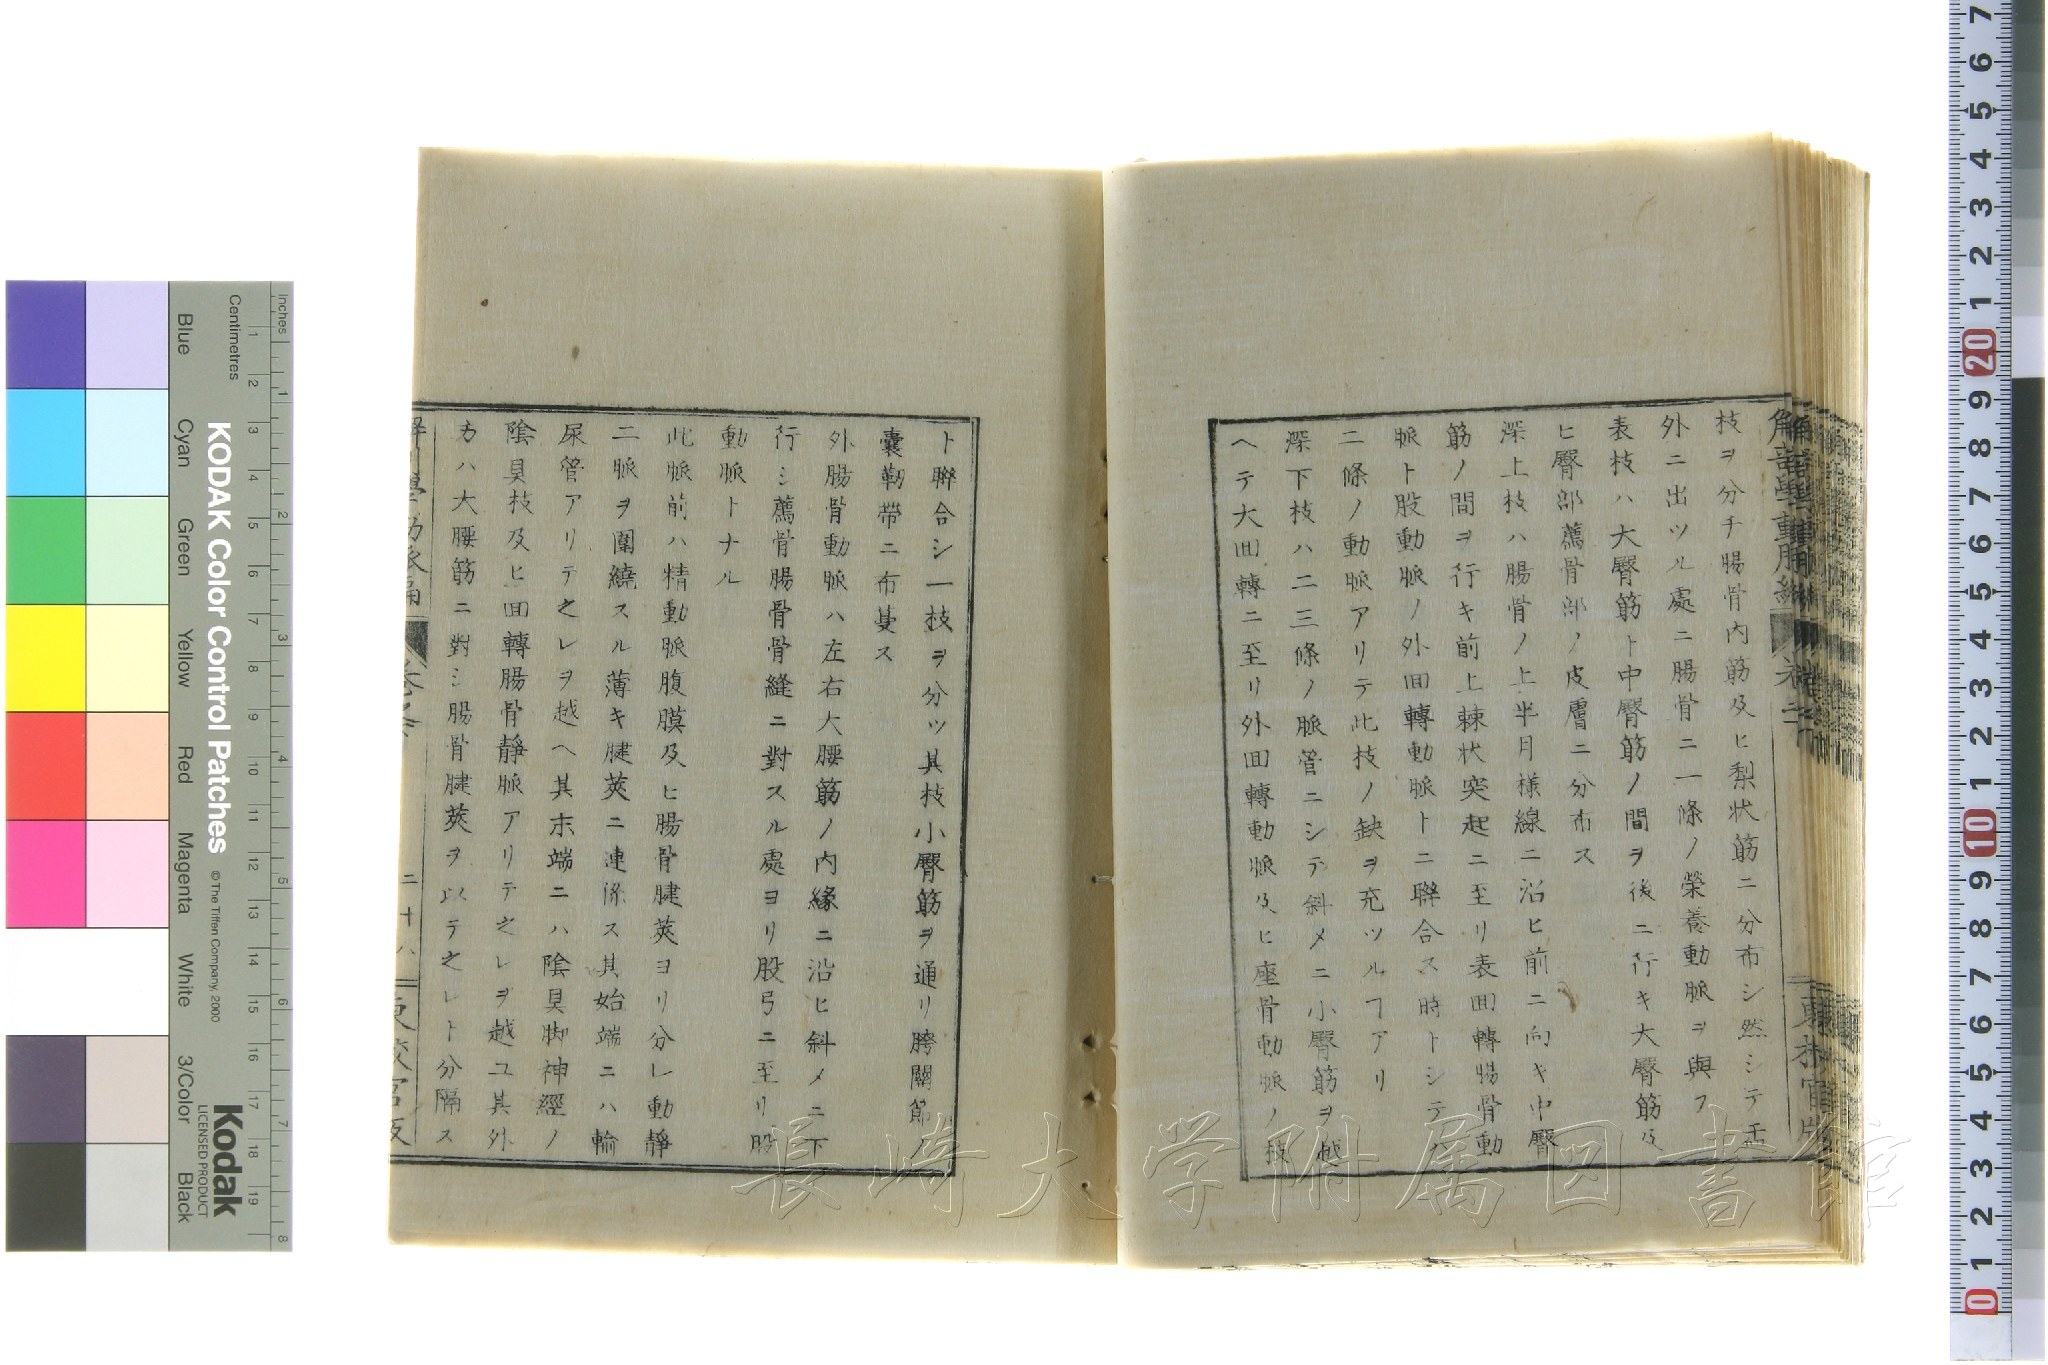 枝ヲ分チ腸骨内筋及ヒ梨状筋ニ分布シ然シテ盂
外ニ出ツル處ニ腸骨ニ一條ノ榮養動脈ヲ與フ
表枝ハ大臀筋ト中臀筋ノ間ヲ後ニ行キ大臀筋及
ヒ臀部薦骨部ノ皮膚ニ分布ス
深上枝ハ腸骨ノ上半月様線ニ沿ヒ前ニ向キ中臀
筋ノ間ヲ行キ前上棘状突起ニ至リ表回轉腸骨動
脈ト股動脈ノ外回轉動脈トニ聯合ス時トシテハ
二條ノ動脈アリテ此枝ノ缺ヲ充ツルヿアリ
深下枝ハ二三條ノ脈管ニシテ斜メニ小臀筋ヲ越
ヘテ大回轉ニ至リ外回轉動脈及ヒ座骨動脈ノ枝
ト聯合シ一技ヲ分ツ其枝小臀筋ヲ通リ胯關節ノ
囊靭帶ニ布蔓ス
外腸骨動脈ハ左右大腰筋ノ内縁ニ沿ヒ斜メニ下
行シ薦骨腸骨骨縫ニ對スル處ヨリ股弓ニ至リ股
動脈トナル
此脈前ハ精動脈腹膜及ヒ腸骨腱莢ヨリ分レ動靜
二脈ヲ圍繞スル薄キ腱莢ニ連係ス其始端ニハ輸
尿管アリテ之レヲ越ヘ其末端ニハ陰具脚神經ノ
陰具枝及ヒ回轉腸骨靜脈アリテ之レヲ越ユ其外
方ハ大腰筋ニ對シ腸骨腱莢ヲ以テ之レト分隔ス
二十八
長崎大学附属図書館
KODAK Color Control Patches
© The Tiffen Company, 2000
Kodak
LICENSED PRODUCT
Inches
Centimetres
Blue
Cyan
Green
Yellow
Red
Magenta
White
3/Color
Black